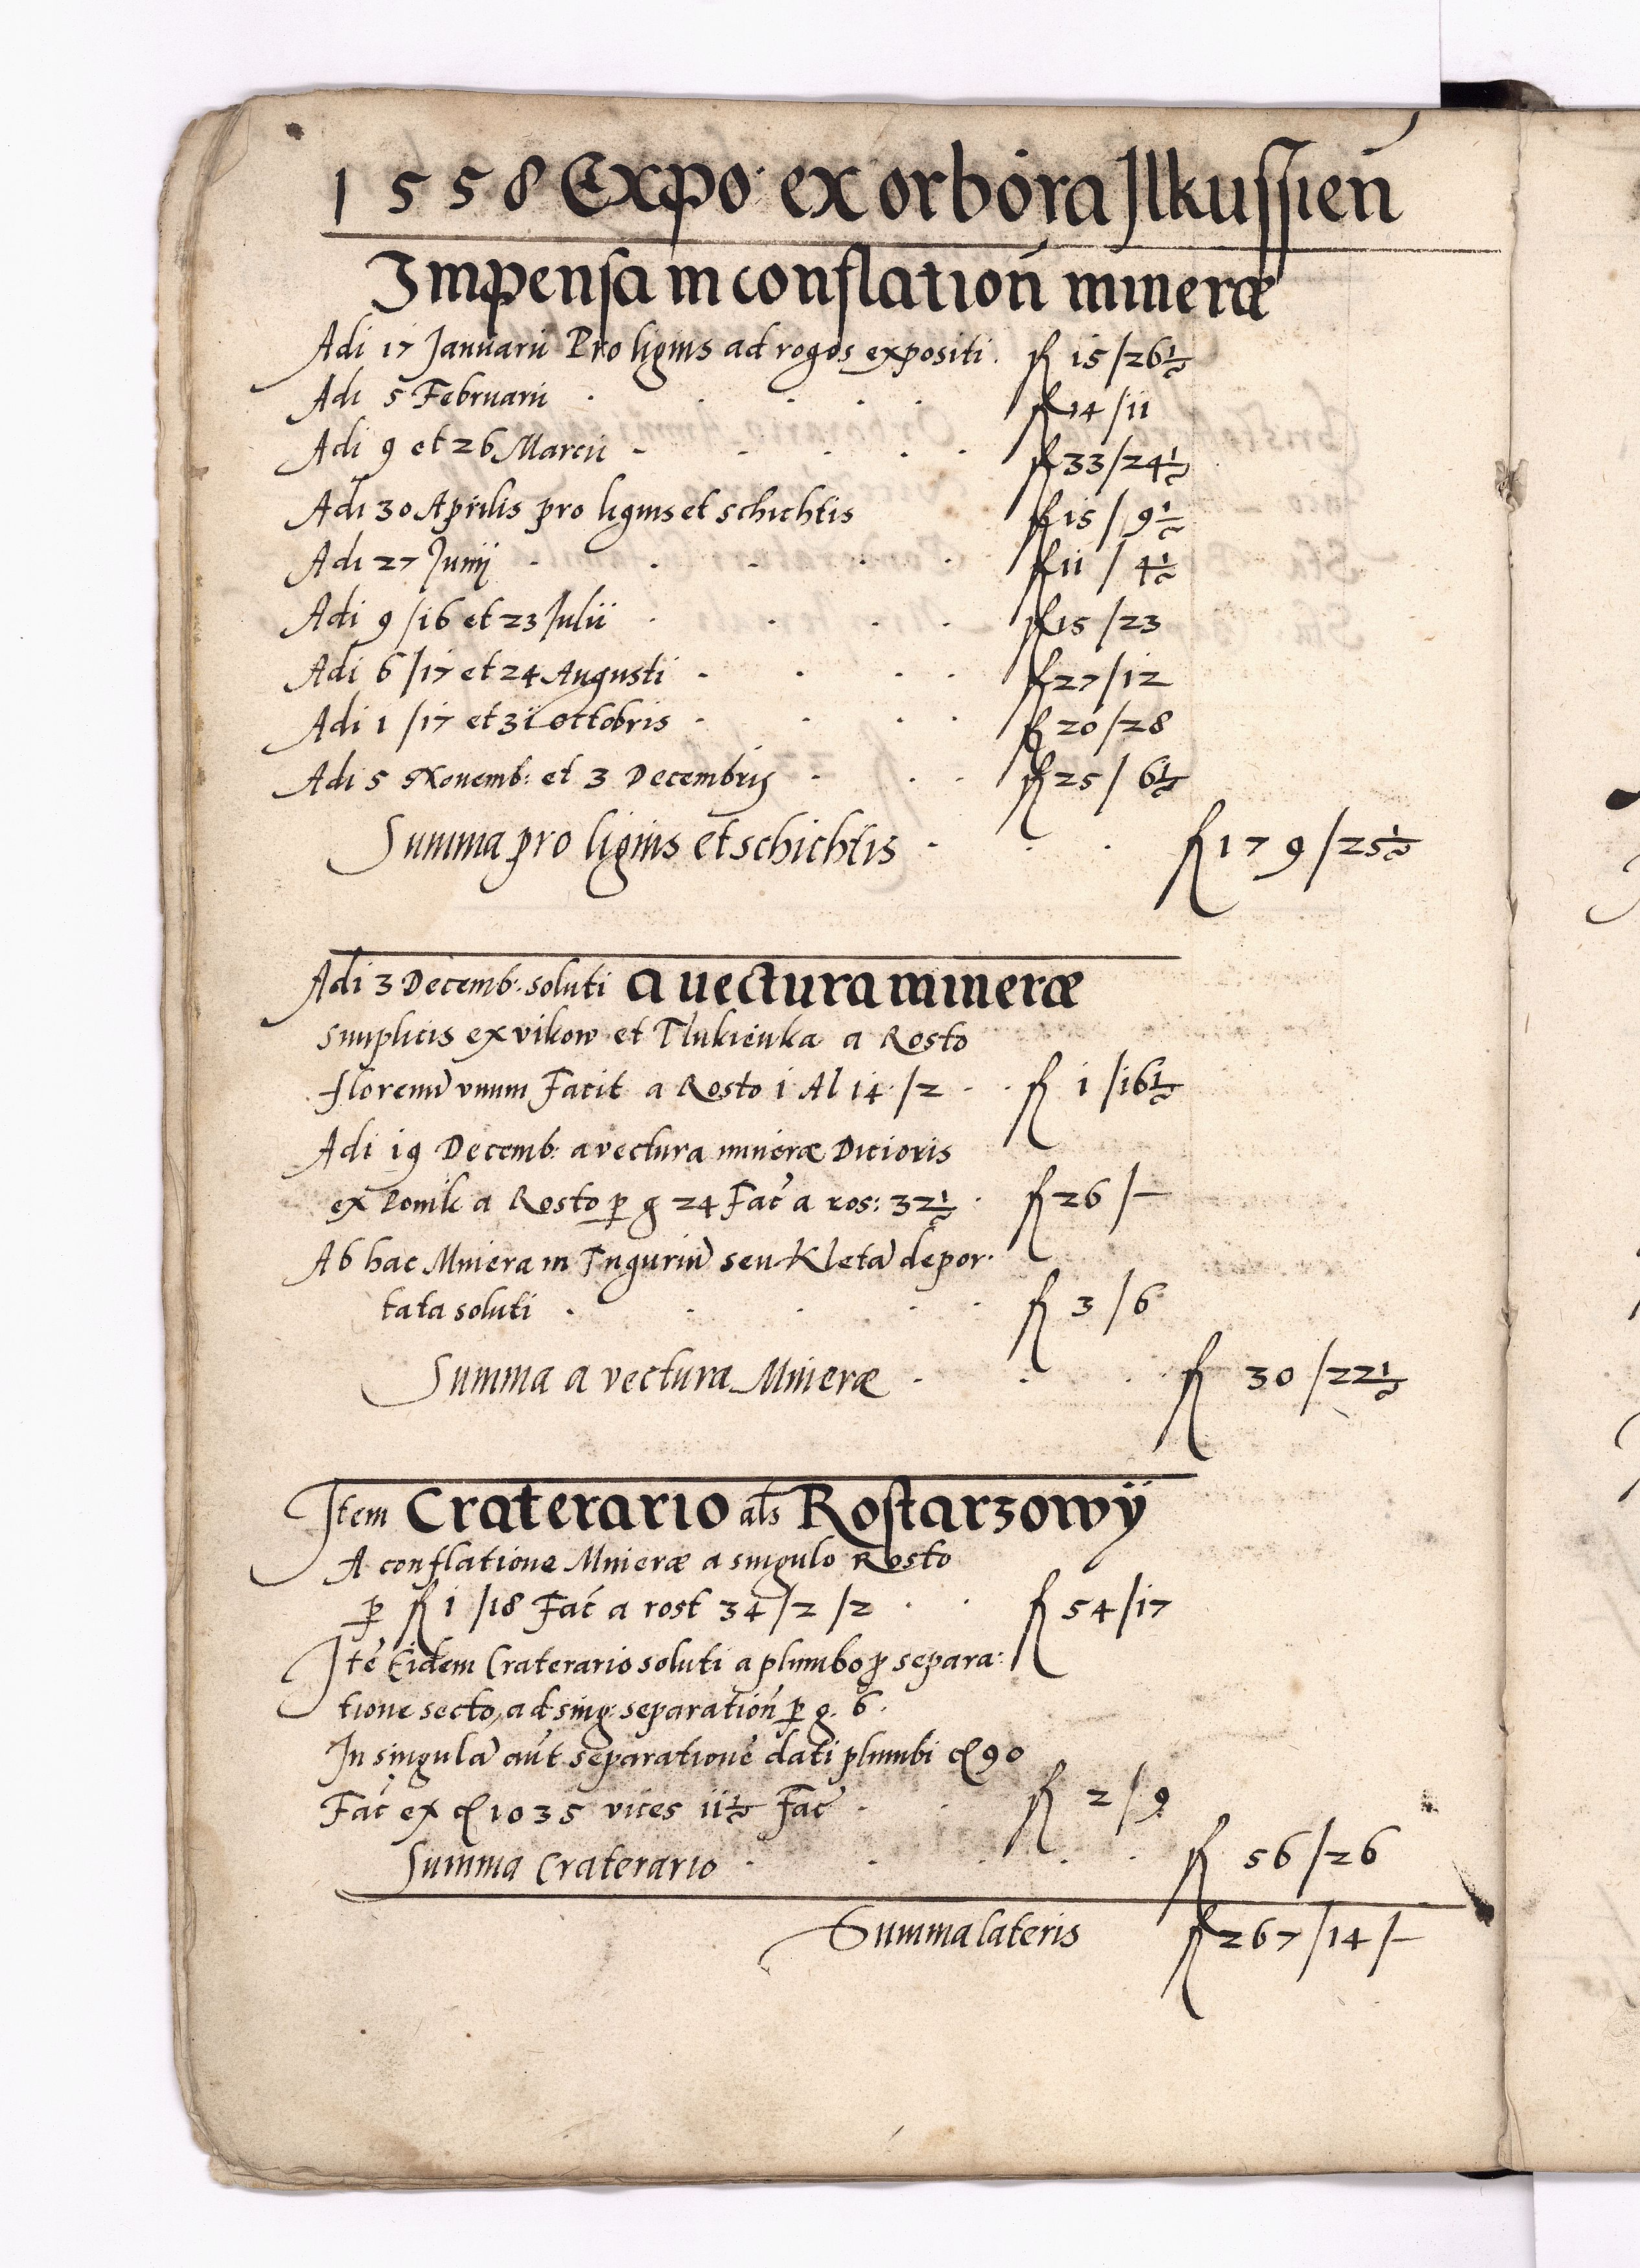 1558 Expo: ex orbora Ilkussien̄
Impensa in conflation̄ mineræ
Adi 17 Januarii Pro lignis ad rogos expositi. fl 15/26½
Adi 5 Februarii . . . . . fl 14/11
Adi 9 et 26 Marcii - . . . . fl 33/24½
Adi 30 Aprilis pro lignis et schichtis fl 15/9½
Adi 27 Junij . . . . . fl 11/4½
Adi 9/16 et 23 Julii . . . . fl 15/23
Adi 6/17 et 24 Augusti . . . . fl 27/12
Adi 1/17 et 31 Octobris . . . . fl 20/28
Adi 5 Novemb: et 3 Decembris . . . fl 25/6½
Summa pro lignis et schichtis . . . fl 179/25½
Adi 3 Decemb. soluti a vectura mineræ
simplicis ex vikow et Tlukienka a Rosto
florenū vnum Facit a Rosto 1 Al 14/2 . . fl 1/16½
Adi 19 Decemb: a vectura mineræ Dicioris
ex Ponik a Rosto p̱ g 24 Fac̄ a ros: 32½ . fl 26/-
Ab hac Minera in Tuguriū seu Kletā depor.
tata soluti . . . . . fl 3/6
Summa a vectura Mineræ . . . fl 30/22½
Item Craterario als Rostarzowÿ
A conflatione Mineræ a singulo Rosto
p̱ fl 1/18 Fac̄ a rost 34/2/2 . . fl 54/17
Itē Eidem Craterario soluti a plumbo p̱ separa:
tione secto, ad sing: separation̄ p̱ g. 6.
In singulā aūt separationē dati plumbi cł 90
Fac̄ ex cł 1035 vices 11½ Fac̄ . . fl 2/9
Summa Craterario . . . . . fl 56/26
Summa lateris fl 267/14/-